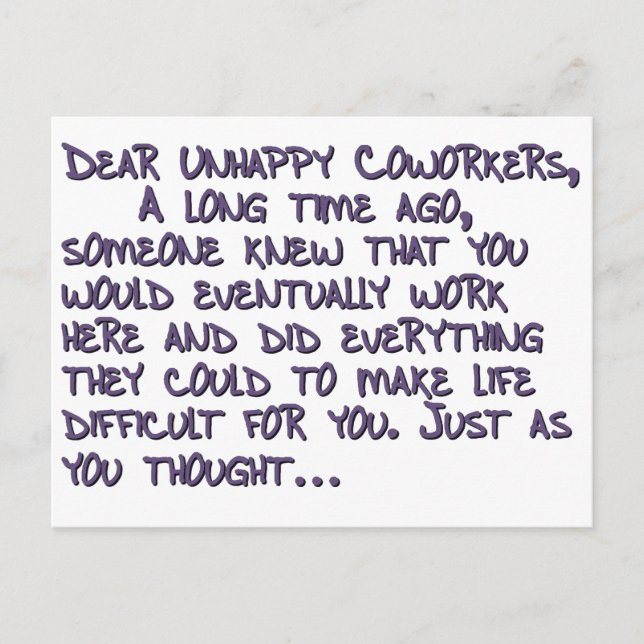 Dear Unhappy Coworkers,
A long time ago,
someone knew that you
would eventually work
here and did everything
they could to make life
difficult for you. Just as
you thought...